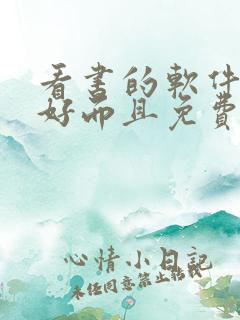 看書的軟件
好而且免費
心情小日記
未任同意禁止轉載